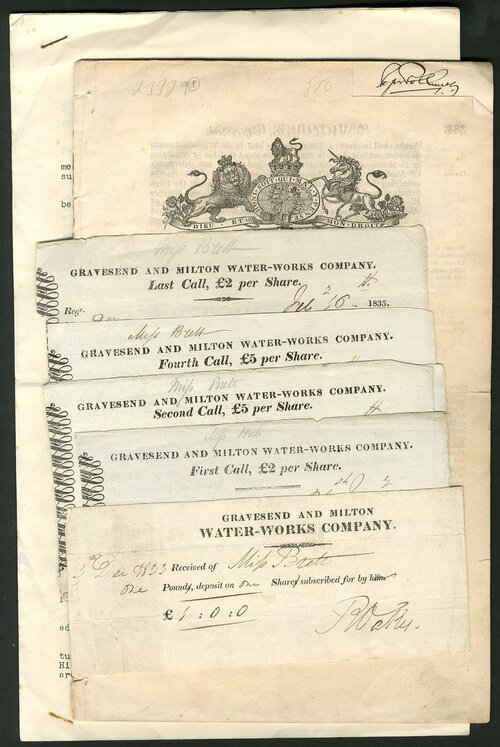 23379
me
su
be
HONI SOIT QUI MAL Y PENSE
DIEU ET MON DROIT
Miss Brett
GRAVESEND AND MILTON WATER-WORKS COMPANY.
Last Call, £2 per Share.
Regr. Feb 16th 1835.
Miss Brett
GRAVESEND AND MILTON WATER-WORKS COMPANY.
Fourth Call, £5 per Share.
Miss Brett
GRAVESEND AND MILTON WATER-WORKS COMPANY.
Second Call, £5 per Share.
Miss Brett
GRAVESEND AND MILTON WATER-WORKS COMPANY.
First Call, £2 per Share.
GRAVESEND AND MILTON
WATER-WORKS COMPANY.
3rd Dec 1833 Received of Miss Brett
one Pounds, deposit on one Shares subscribed for by him
£ 1:0:0
ad
tu
Hi
are